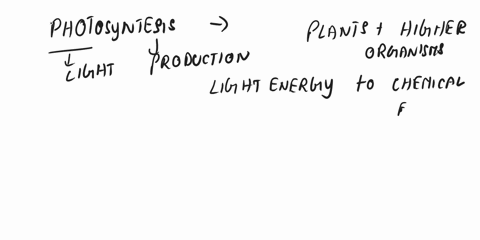 PHOTOSYNTESIS → PLANTS + HIGHER
ORGANISMS
LIGHT PRODUCTION
LIGHT ENERGY to CHEMICAL
F